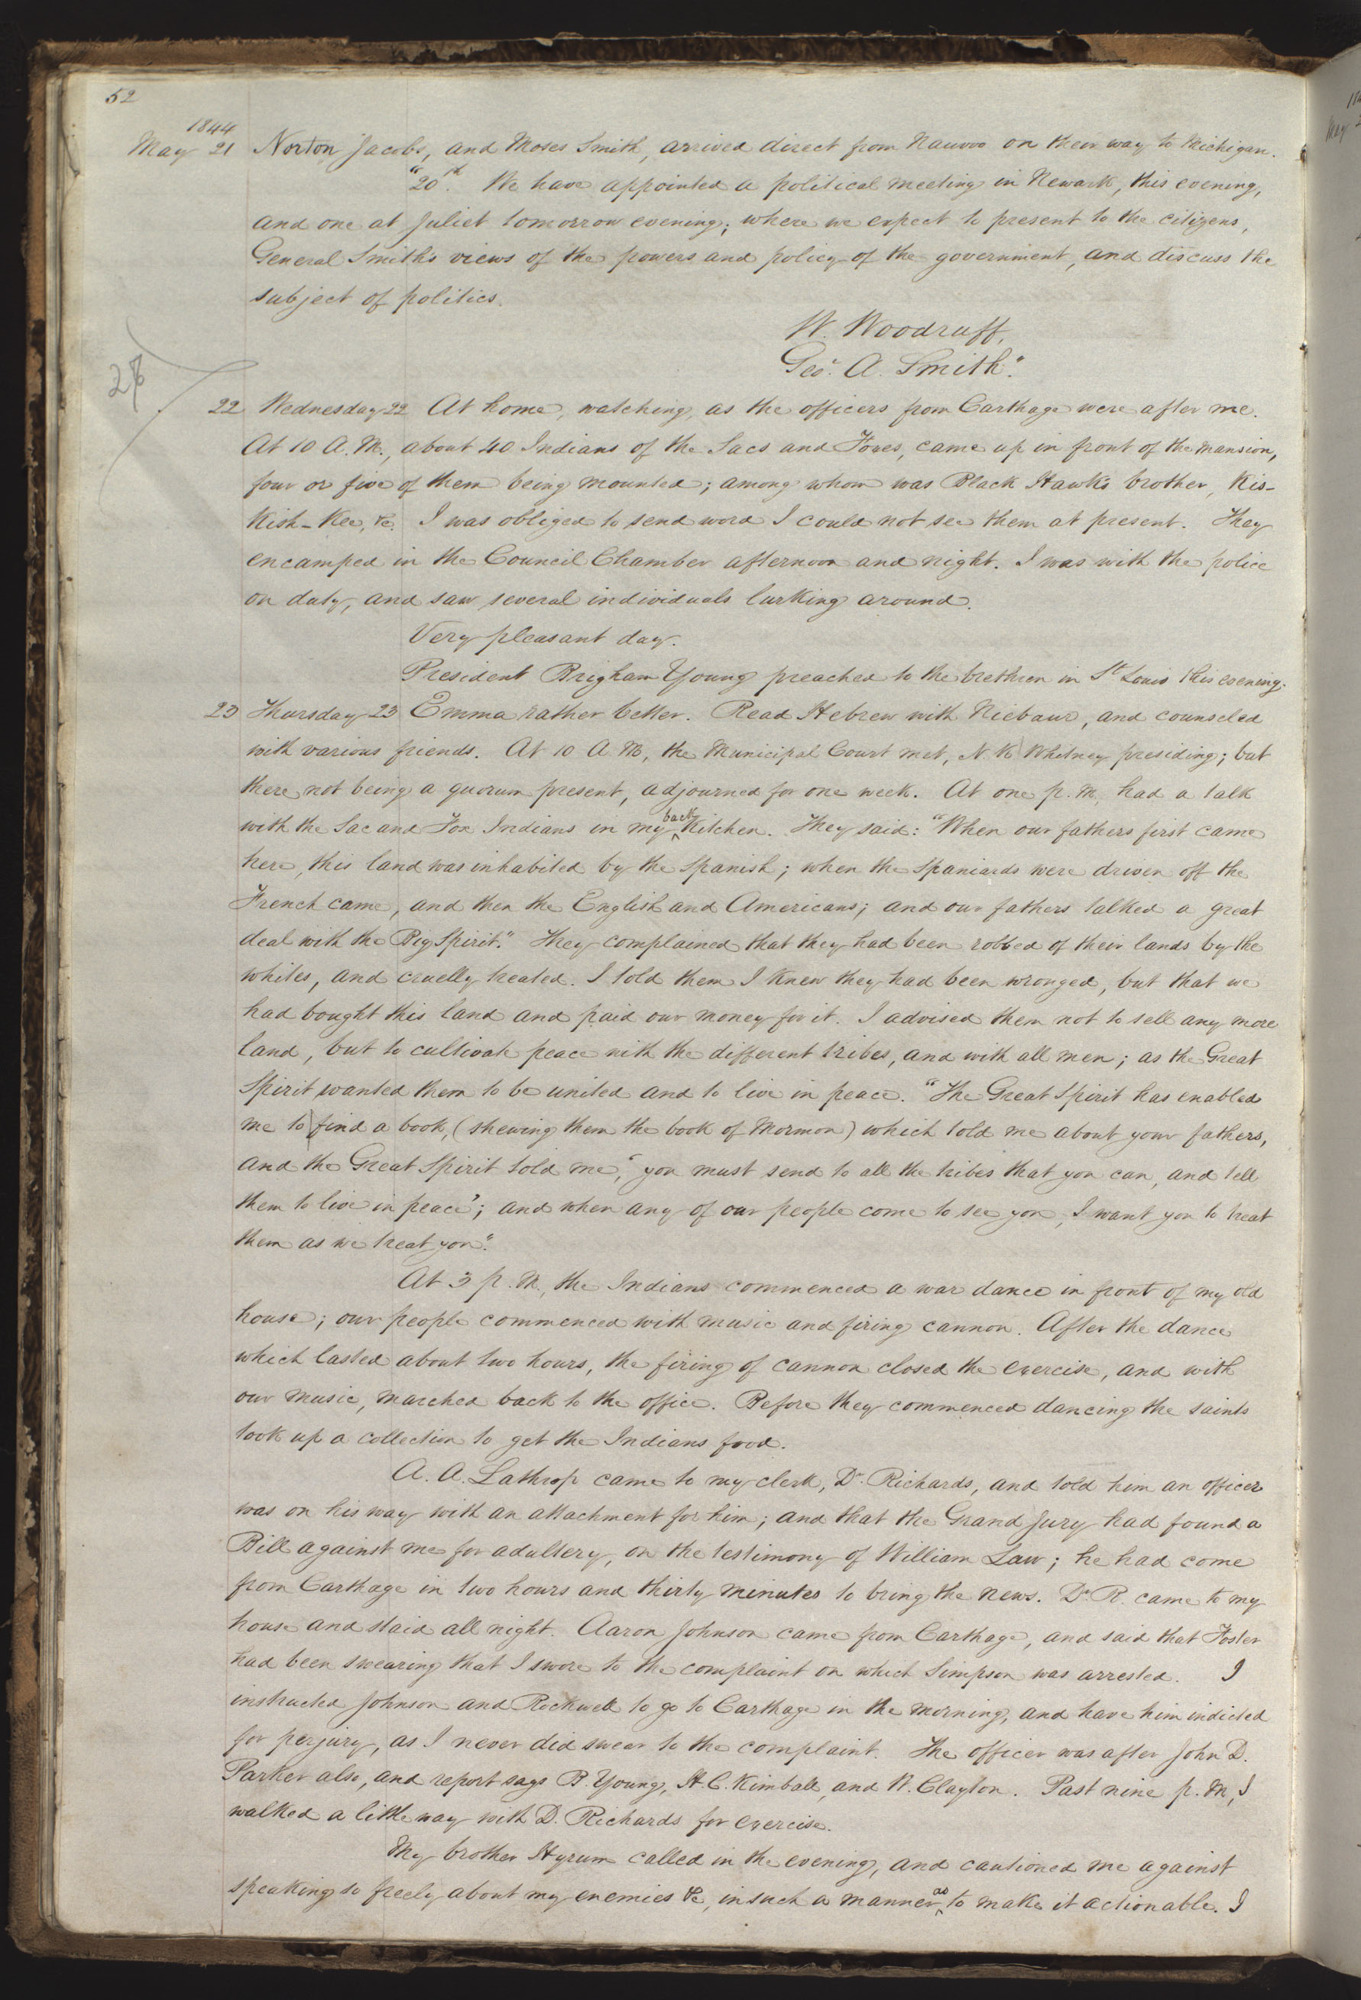 52
1844
May 21 Norton Jacobs, and Moses Smith, arrived direct from Nauvoo on their way to Michigan.
"20th. We have appointed a political meeting in Newark, this evening,
and one at Juliet tomorrow evening; where we expect to present to the citizens,
General Smith's views of the powers and policy of the government, and discuss the
subject of politics.
W. Woodruff,
Geo. A. Smith."
28
22 Wednesday 22 At home, watching, as the officers from Carthage were after me.
At 10 A.M., about 40 Indians of the Sacs and Foxes, came up in front of the Mansion,
four or five of them being mounted; among whom was Black Hawk's brother, Kis-
Kish-Kee, &c. I was obliged to send word I could not see them at present. They
encamped in the Council Chamber afternoon and night. I was with the police
on duty, and saw several individuals lurking around.
Very pleasant day.
President Brigham Young preached to the brethren in St Louis this evening.
23 Thursday 23 Emma rather better. Read Hebrew with Niebaur, and counseled
with various friends. At 10 A M, the Municipal Court met, N. K. Whitney presiding; but
there not being a quorum present, adjourned for one week. At one p. m, had a talk
with the Sac and Fox Indians in my back Kitchen. They said: "When our fathers first came
here, this land was inhabited by the Spanish; when the Spaniards were driven off the
French came, and then the English and Americans; and our fathers talked a great
deal with the Big Spirit." They complained that they had been robbed of their lands by the
whites, and cruelly treated. I told them I knew they had been wronged, but that we
had bought this land and paid our money for it. I advised them not to sell any more
land, but to cultivate peace with the different tribes, and with all men; as the Great
Spirit wanted them to be united and to live in peace. "The Great Spirit has enabled
me to find a book, (shewing them the book of Mormon) which told me about your fathers,
and the Great Spirit told me, 'you must send to all the tribes that you can, and tell
them to live in peace'; and when any of our people come to see you, I want you to treat
them as we treat you."
At 3 p. M., the Indians commenced a war dance in front of my old
house; our people commenced with music and firing cannon. After the dance
which lasted about two hours, the firing of cannon closed the exercise, and with
our music, marched back to the office. Before they commenced dancing the saints
took up a collection to get the Indians food.
A. A. Lathrop came to my clerk, Dr. Richards, and told him an officer
was on his way with an attachment for him; and that the Grand Jury had found a
Bill against me for adultery, on the testimony of William Law; he had come
from Carthage in two hours and thirty minutes to bring the news. Dr R. came to my
house and staid all night. Aaron Johnson came from Carthage, and said that Foster
had been swearing that I swore to the complaint on which Simpson was arrested. I
instructed Johnson and Rockwell to go to Carthage in the morning, and have him indicted
for perjury, as I never did swear to the complaint. The officer was after John D.
Parker also, and report says B. Young, H. C. Kimball, and W. Clayton. Past nine p. M, I
walked a little way with D. Richards for exercise.
My brother Hyrum called in the evening, and cautioned me against
speaking so freely about my enemies &c, in such a manner as to make it actionable. I